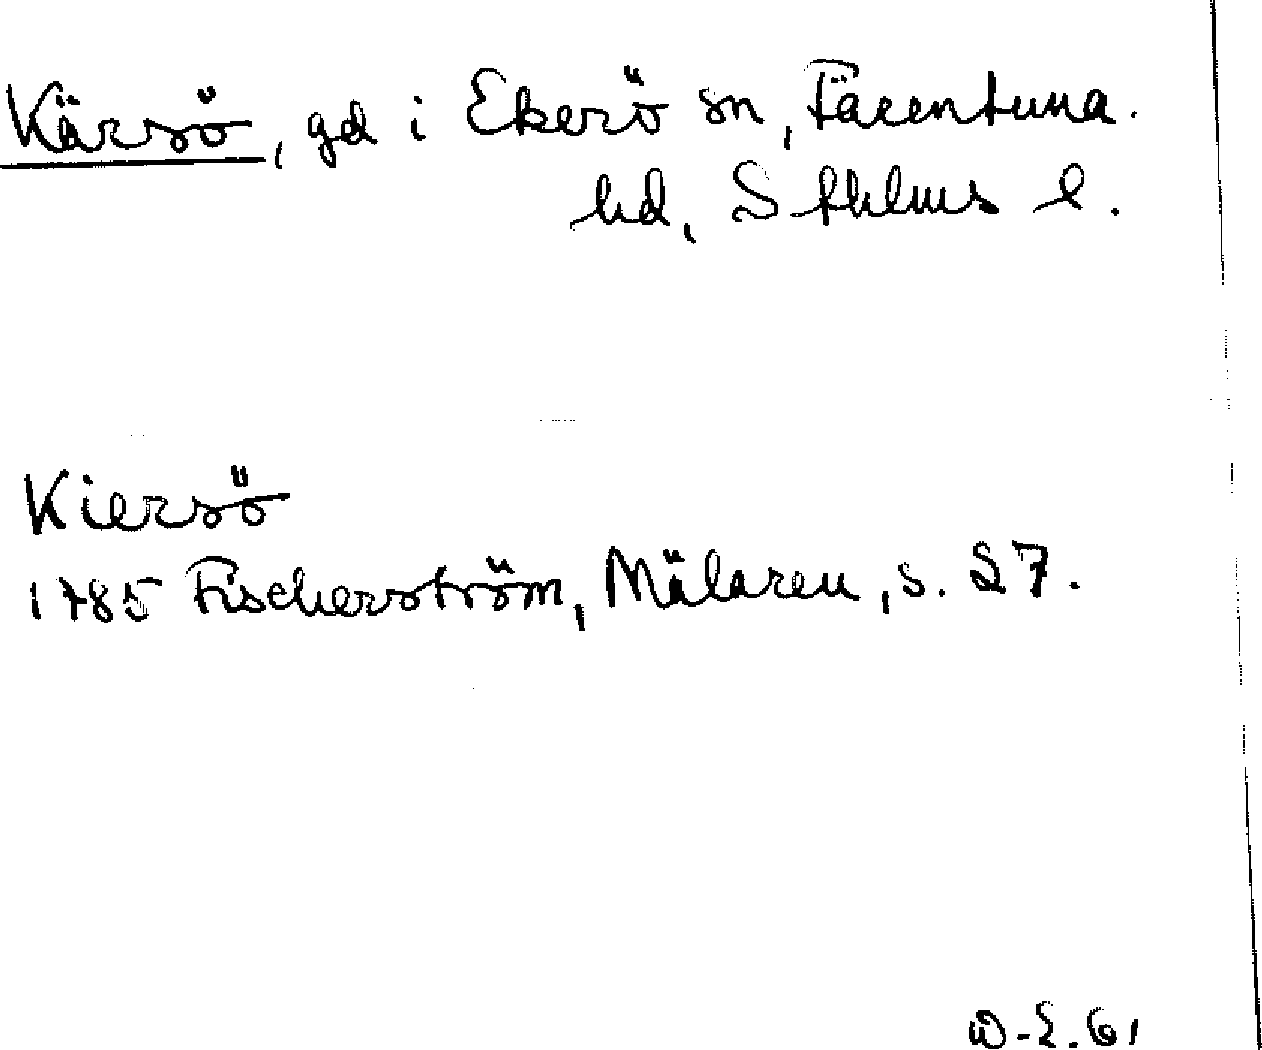 Kärsö, gd i Ekerö sn, Färentuna.
hd, Sthlms l.
Kiersö
1785 Fischerström, Mälaren, s. 27.
W-E. 61